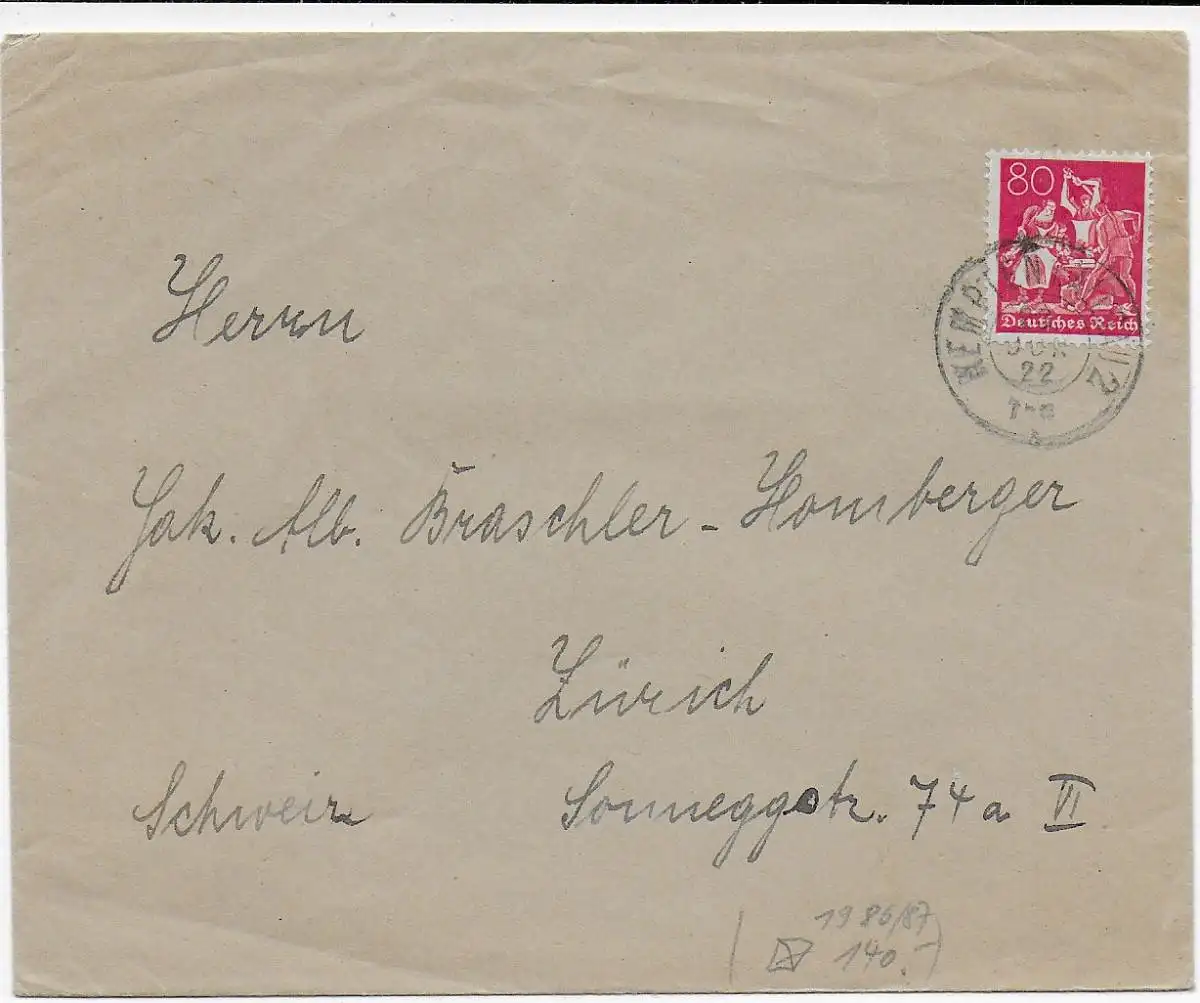 80
Deutsches Reich
KEMPTEN
22
Herrn
Jak. Alb. Braschler-Homberger
Zürich
Schweiz
Sonneggstr. 74a VI
1986/87
140.-